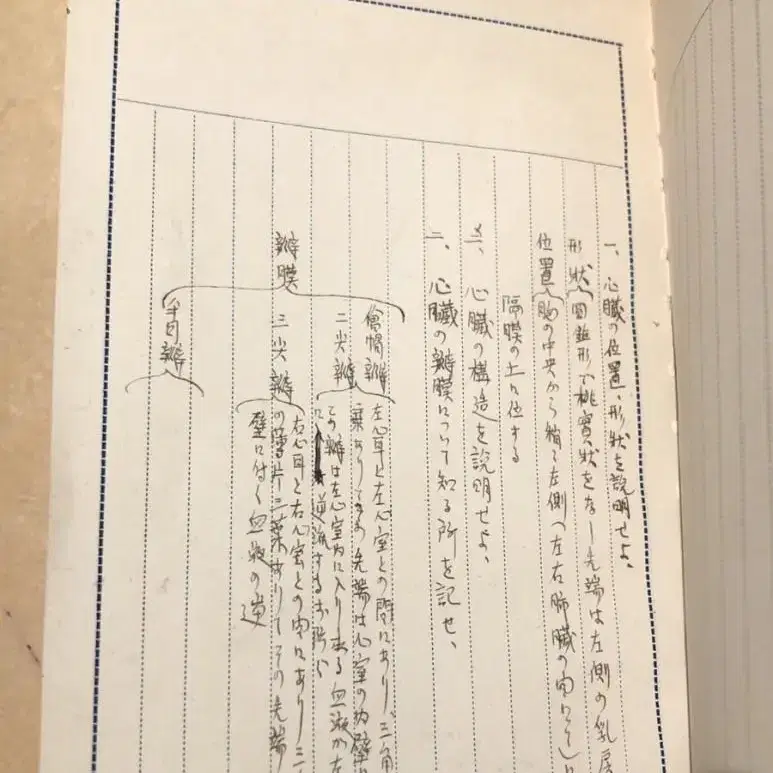 一、心臓の位置、形状を説明せよ、
形状 圓錐形で桃實状をなし先端は左側の乳房
位置 胸の中央から稍〻左側へ左右肺臓の内にし
隔膜の上に位する
心臓の構造を説明せよ、
二、心臓の瓣膜について知る所を記せ、
瓣膜
僧帽瓣
二尖瓣
左心耳と左心室との間にあり、三角
葉ありて 先端は心室の内壁
この瓣は左心室内に入り来る血液が左
に 逆流するを防ぐ
三尖瓣
右心耳と右心室との内にあり三
の薄片三葉ありてその先端
壁に付く血液の逆
半月瓣